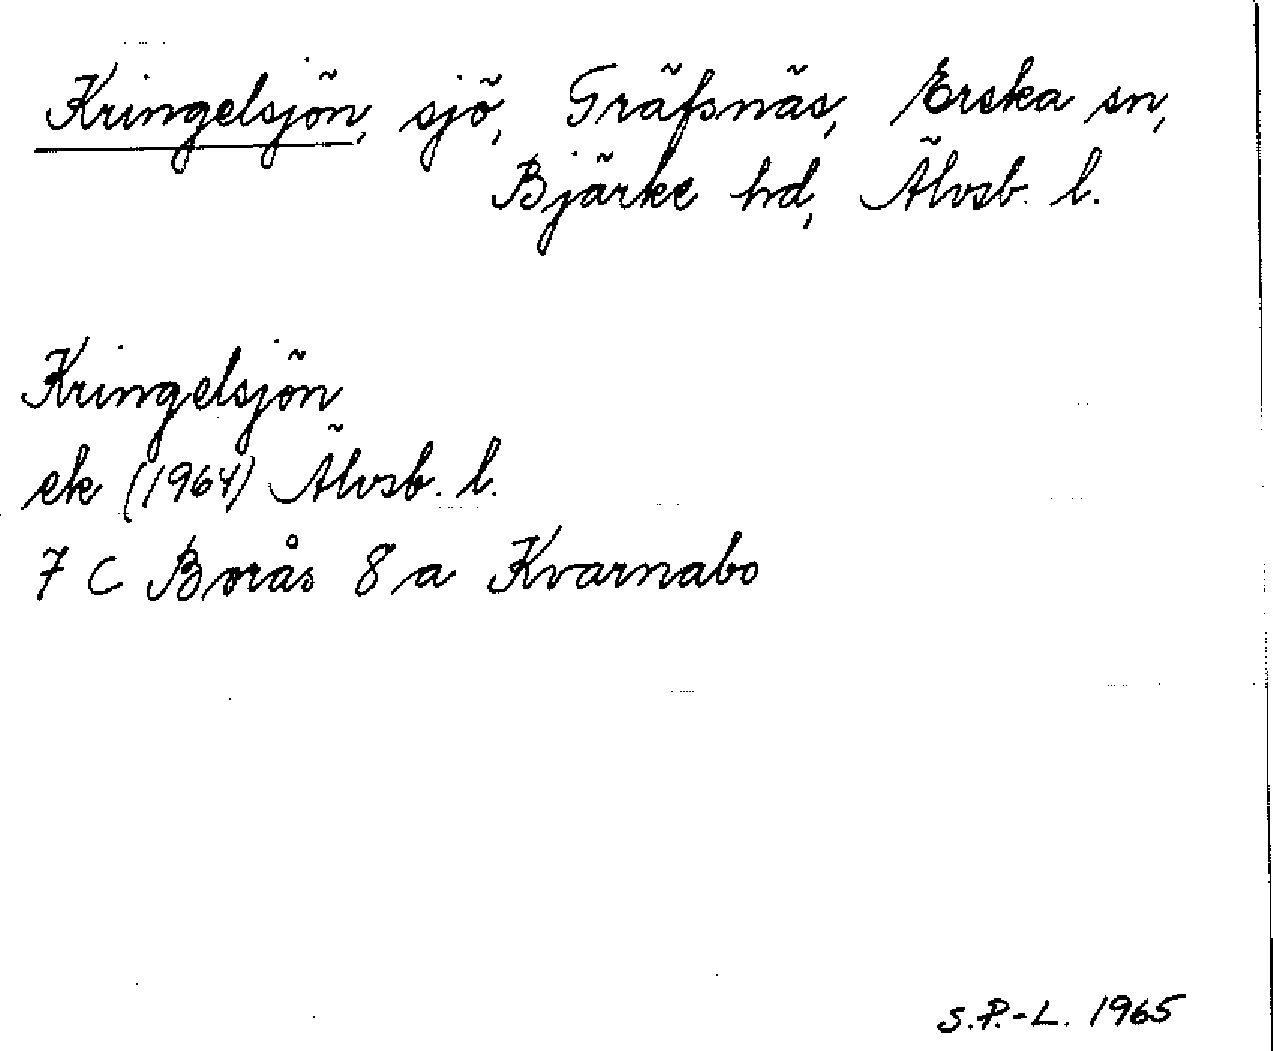 Kringelsjön, sjö, Gräfsnäs, Erska sn,
Bjärke hd, Älvsb. l.
Kringelsjön
ek (1964) Älvsb. l.
7 C Borås 8 a Kvarnabo
S.P.-L. 1965